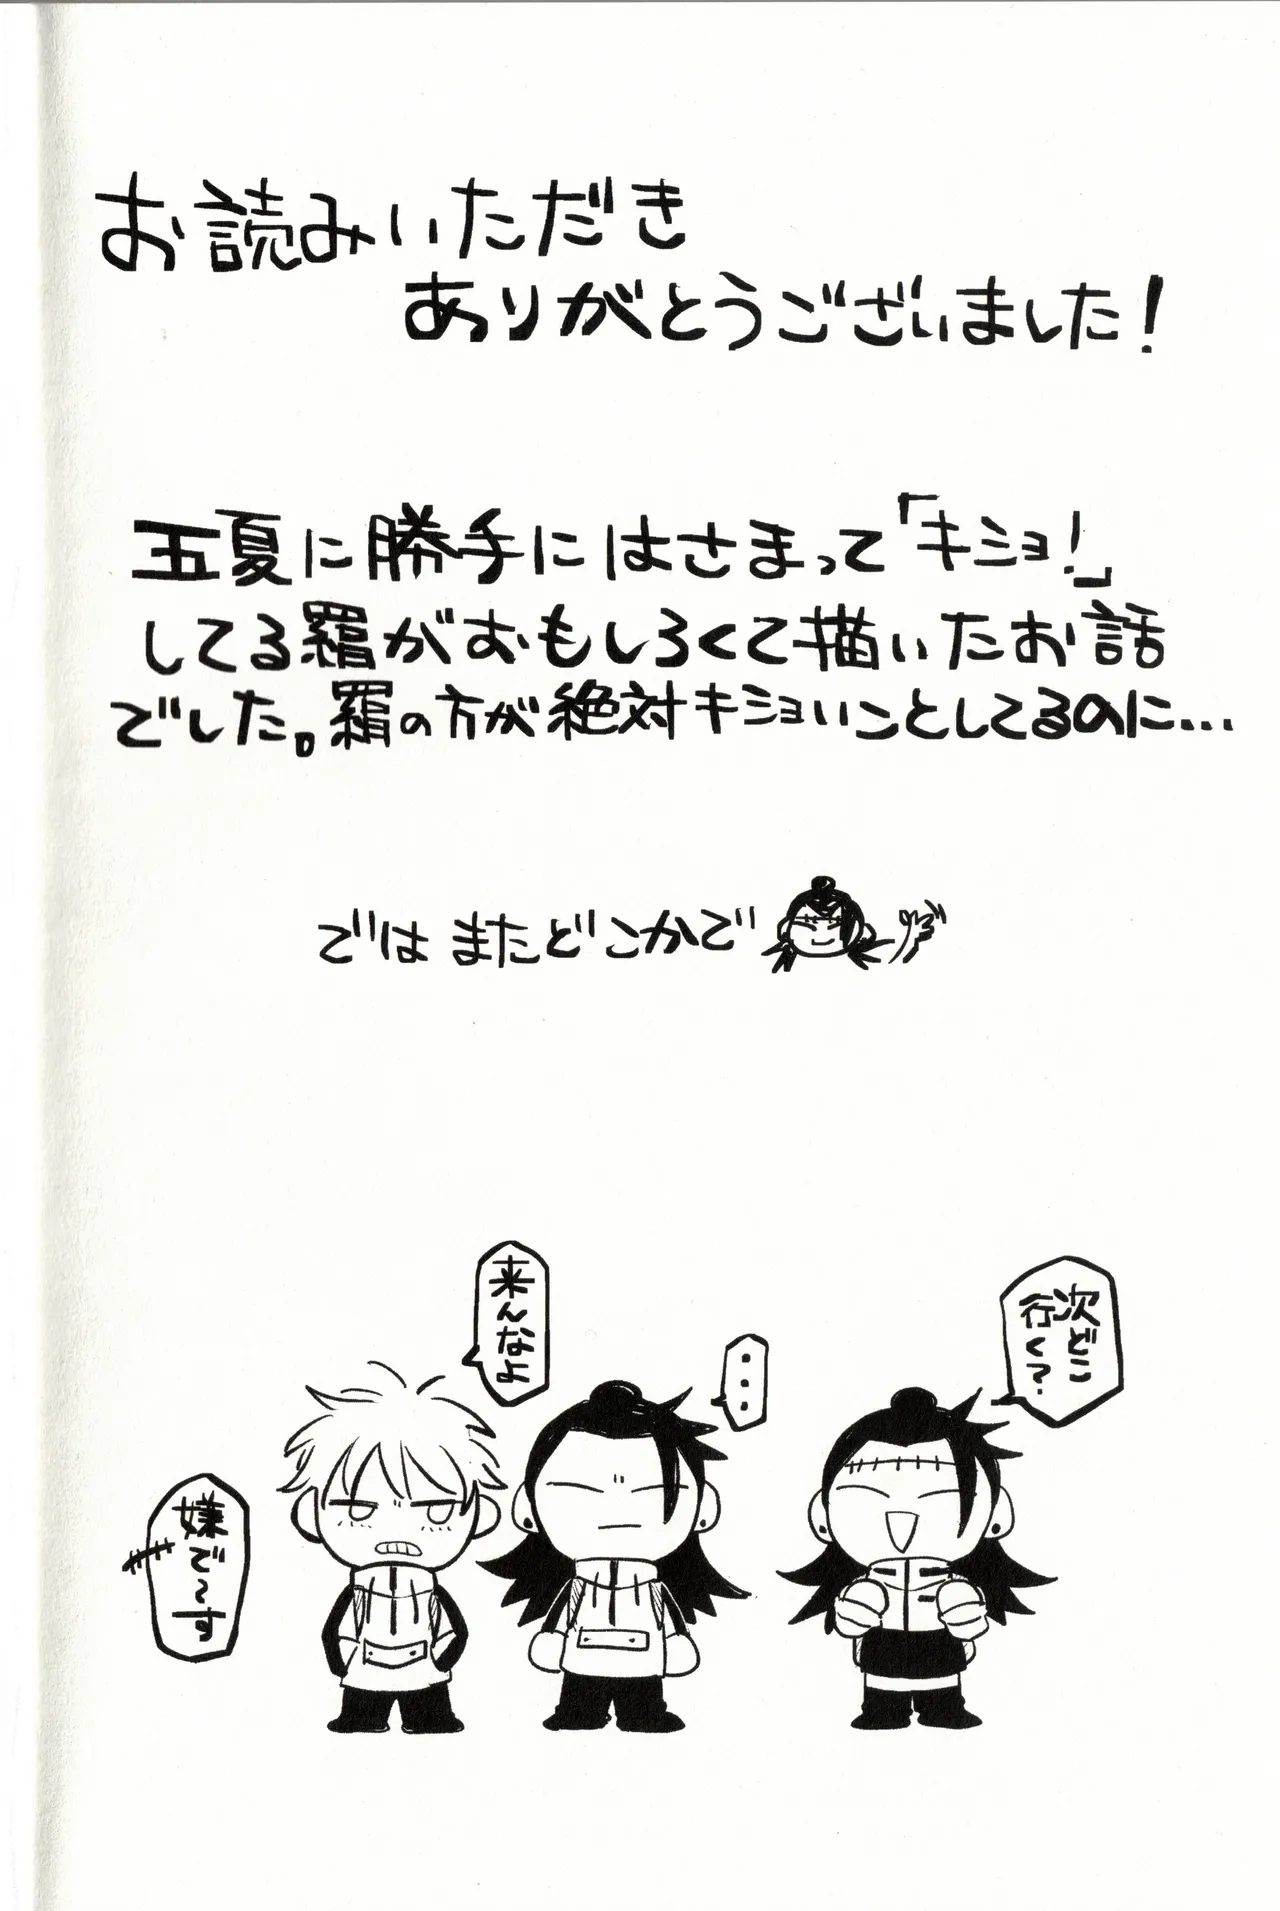 お読みいただき
ありがとうございました!
五夏に勝手にはさまって「キショ!」
してる羂がおもしろくて描いたお話
でした。羂の方が絶対キショいことしてるのに…
ではまたどこかで
次どこ
行く?
・・・
来んなよ
嫌で〜す